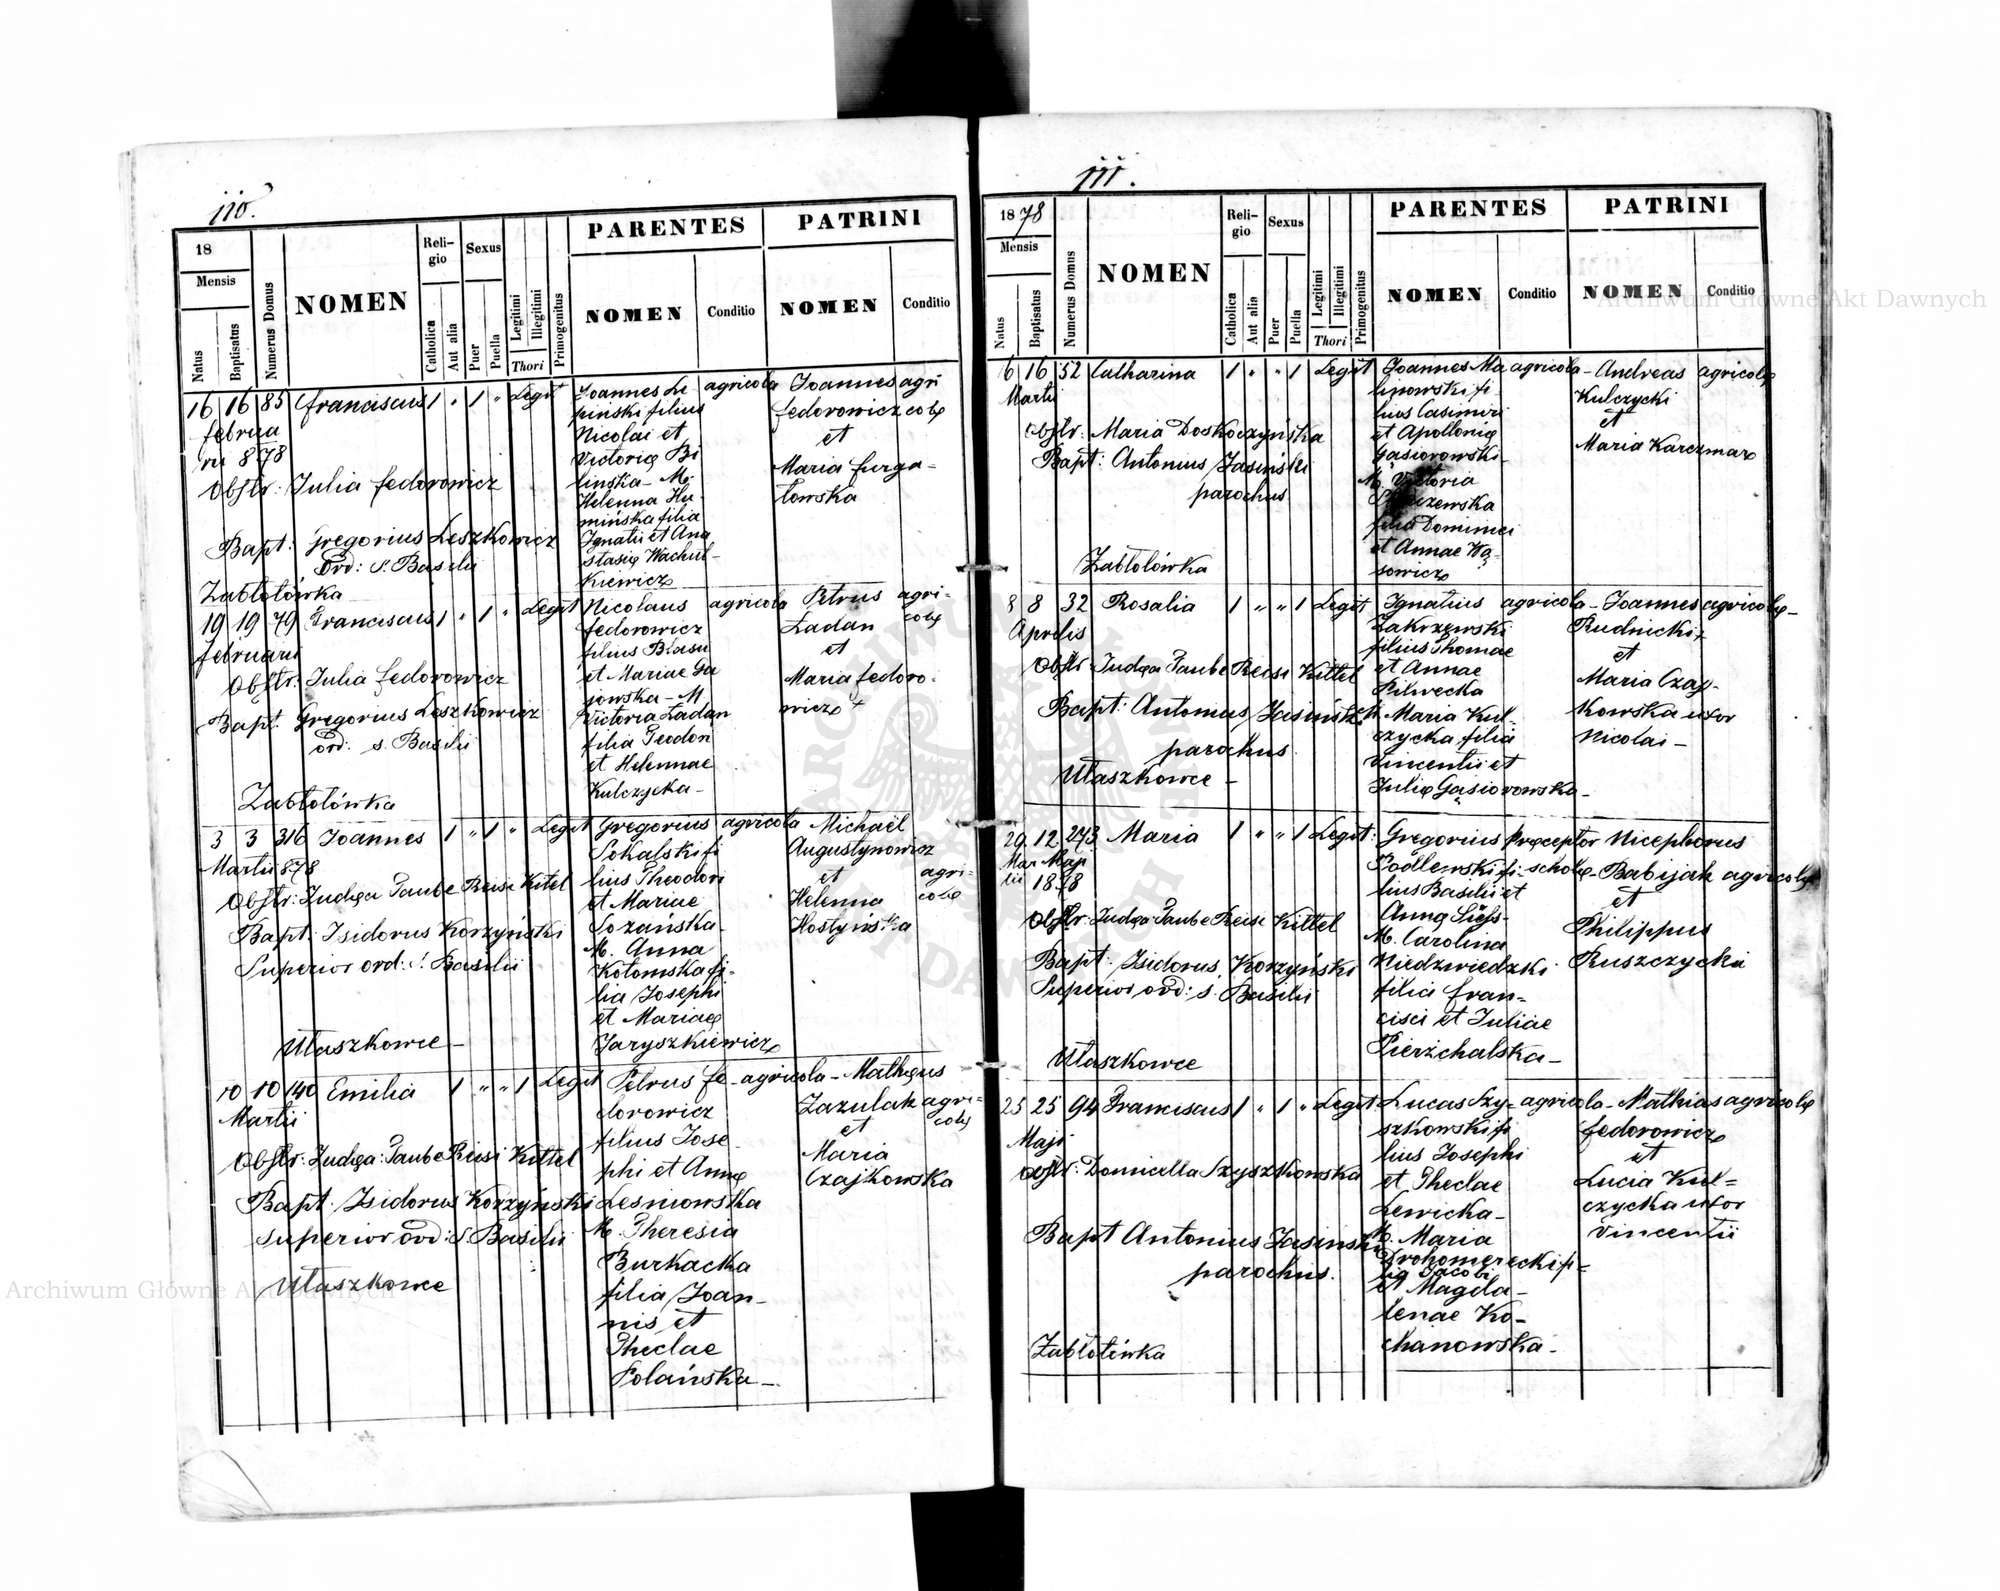 110.
18
Mensis
Natus
Baptisatus
Numerus Domus
NOMEN
Reli-
gio
Catholica
Aut alia
Sexus
Puer
Puella
Legitimi
Illegitimi
Thori
Primogenitus
PARENTES
NOMEN
Conditio
PATRINI
NOMEN
Conditio
16 16 85 Franciscus 1 " 1 " Legit
Februa
rii 878
Obstr: Julia Fedorowicz
Bapt: Gregorius Leszkowicz
Ord: S. Basilii
Zabłotówka
Joannes Li
pinski filius
Nicolai et
Victoriae Bi
linska - M.
Helenna Hu-
mińska filia
Ignatii et Ana
stasiae Wachul-
kiewicz
agricola
Joannes agri
Fedorowicz colae
et
Maria Furga-
łowska
19 19 79 Franciscus 1 " 1 " Legit
Februarii
Obstr: Julia Fedorowicz
Bapt. Gregorius Leszkowicz
ord: S. Basilii
Zabłotówka
Nicolaus
Fedorowicz
filius Blasii
et Mariae Ga
jowska - M
Victoria Ładan
filia Teodori
et Helennae
Kulczycka -
agricola
Petrus agri-
Ładan colae
et
Maria Fedoro-
wicz
3 3 316 Joannes 1 " 1 " Legit
Martii 878
Obstr: Judaea Taube Reisi Kitel
Bapt: Isidorus Korzyński
Superior ord: S. Basilii
Ułaszkowce -
Gregorius
Sokalski fi
lius Theodori
et Mariae
Sozańska -
M. Anna
Kołomska fi-
lia Josephi
et Mariae
Jaryszkiewicz
agricola
Michaël
Augustynowicz
et agri-
Helenna colae
Hostyńska
10 10 140 Emilia 1 " " 1 Legit
Martii
Obstr: Judaea: Taube Reisi Kittel
Bapt: Isidorus Korzyński
superior ord: S. Basilii
Ułaszkowce
Petrus Fe-
dorowicz
filius Jose-
phi et Annae
Lesniowska
M. Theresia
Burkacka
filia Joan-
nis et
Theclae
Solańska -
agricola -
Mathaeus
Zazulak agri-
et colae
Maria
Czajkowska
111.
1878
Mensis
Natus
Baptisatus
Numerus Domus
NOMEN
Reli-
gio
Catholica
Aut alia
Sexus
Puer
Puella
Legitimi
Illegitimi
Thori
Primogenitus
PARENTES
NOMEN
Conditio
PATRINI
NOMEN
Conditio
6 16 52 Catharina 1 " " 1 Legit
Martii
Obstr: Maria Doskoczyńska
Bapt: Antonius Jasiński
parochus
Zabłotówka
Joannes Ma
linowski fi-
lius Casimiri
et Apolloniae
Gasiorowski -
M. Victoria
filia Dominici
et Annae Wą-
sowicz
agricola -
Andreas agricolae
Kulczycki
et
Maria Karczmar
8 8 32 Rosalia 1 " " 1 Legit
Aprilis
Obstr: Judaea Taube Reisi Kittel
Bapt: Antonius Jasiński
parochus
Ułaszkowce -
Ignatius
Zakrzewski
filius Thomae
et Annae
Pilwecka
M. Maria Kul-
czycka filia
Vincentii et
Juliae Gąsiorowska -
agricola -
Joannes agricolae -
Rudnicki
et
Maria Czaj-
kowska uxor
Nicolai -
29 12 243 Maria 1 " " 1 Legit:
Mar Maji
tii 1878
Obstr: Judaea Taube Reisi Kittel
Bapt: Isidorus Korzyński
Superior ord: S. Basilii
Ułaszkowce
Gregorius
Podlewski fi-
lius Basilii et
Annae
M. Carolina
Niedzwiedzki
filia Fran-
cisci et Juliae
Pierzchalska -
praeceptor
scholae -
Nicephorus
Babijak agricolae
et
Philippus
Ruszczycki
25 25 94 Franciscus 1 " 1 " Legit
Maji
Obstr: Domicella Szyszkowska
Bapt Antonius Jasinski
parochus.
Zabłotówka
Lucas Szy-
szkowski fi
lius Josephi
et Theclae
Lewicka -
M. Maria
Drohomerecki fi-
lia Jacobi
et Magda-
lenae Ko-
chanowska -
agricola -
Mathias agricolae
Fedorowicz
et
Lucia Kul-
czycka uxor
Vincentii
Archiwum Główne Akt Dawnych
Archiwum Główne Akt Dawnych